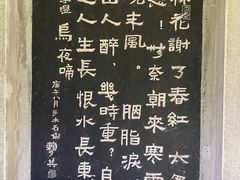 林花謝了春紅 太
匆!無奈朝來寒雨
晚來風。胭脂淚
人醉,幾時重?自
之人生長恨水長東
烏夜啼